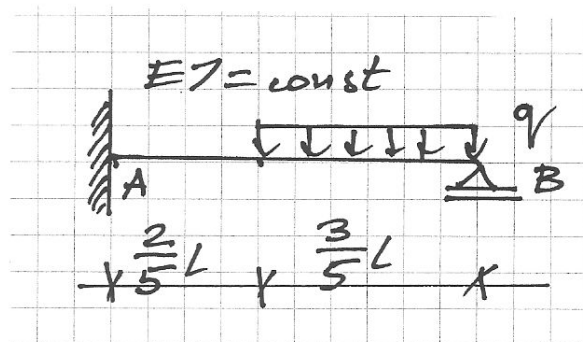 EJ = const
q
A
B
2/5 L
3/5 L